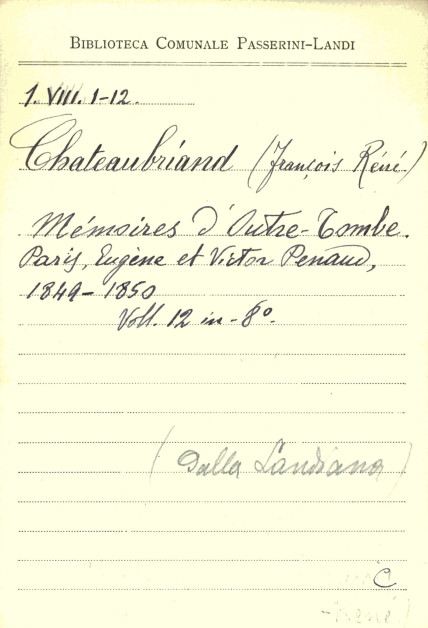 BIBLIOTECA COMUNALE PASSERINI-LANDI
1. VIII. 1-12.
Chateaubriand (François Réné)
Mémoires d'Outre-Tombe.
Paris, Eugène et Victor Penaud,
1849-1850
Voll. 12 in-8º.
(Dalla Landiana)
C